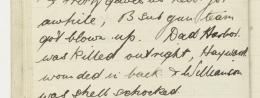 awhile, B sub gun team
got blown up. Dad Harbor
was killed outright, Hayward
wounded in back & Williamson
was shell schocked.